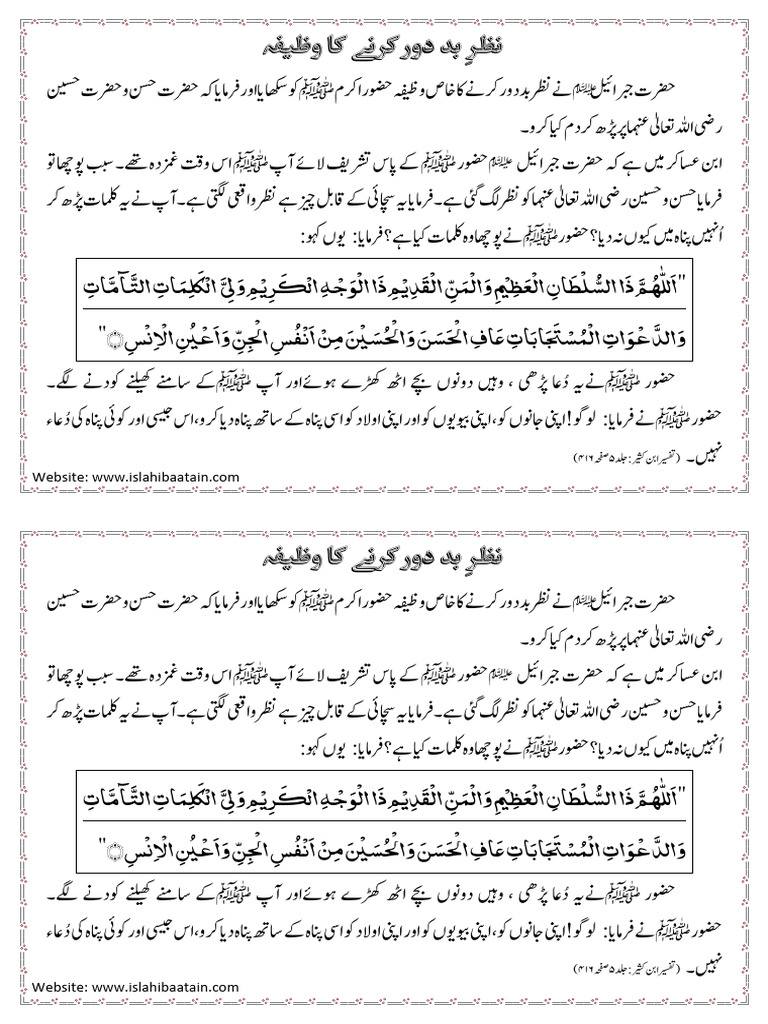 نظرِ بد دور کرنے کا وظیفہ
حضرت جبرائیل علیہ السلام نے نظر بد دور کرنے کا خاص وظیفہ حضور اکرم ﷺ کو سکھایا اور فرمایا کہ حضرت حسن و حضرت حسین
رضی اللہ تعالیٰ عنہما پر پڑھ کر دم کیا کرو۔
ابن عساکر میں ہے کہ حضرت جبرائیل علیہ السلام حضور ﷺ کے پاس تشریف لائے آپ ﷺ اس وقت غمزدہ تھے۔ سبب پوچھا تو
فرمایا حسن و حسین رضی اللہ تعالیٰ عنہما کو نظر لگ گئی ہے۔ فرمایا یہ سچائی کے قابل چیز ہے نظر واقعی لگتی ہے۔ آپ نے یہ کلمات پڑھ کر
اُنہیں پناہ میں کیوں نہ دیا؟ حضور ﷺ نے پوچھا وہ کلمات کیا ہے؟ فرمایا: یوں کہو:
"اَللّٰهُمَّ ذَا السُّلْطَانِ الْعَظِيْمِ وَالْمَنِّ الْقَدِيْمِ ذَا الْوَجْهِ الْكَرِيْمِ وَلِيَّ الْكَلِمَاتِ التَّآمَّاتِ
وَالدَّعْوَاتِ الْمُسْتَجَابَاتِ عَافِ الْحَسَنَ وَالْحُسَيْنَ مِنْ اَنْفُسِ الْجِنِّ وَاَعْيُنِ الْاِنْسِ ۝"
حضور ﷺ نے یہ دُعا پڑھی ، وہیں دونوں بچے اٹھ کھڑے ہوئے اور آپ ﷺ کے سامنے کھیلنے کودنے لگے۔
حضور ﷺ نے فرمایا: لوگو! اپنی جانوں کو، اپنی بیویوں کو اور اپنی اولاد کو اسی پناہ کے ساتھ پناہ دیا کرو، اس جیسی اور کوئی پناہ کی دُعاء
نہیں۔ (تفسیر ابن کثیر: جلد ۵ صفحہ ۴۱۶)
Website: www.islahibaatain.com
نظرِ بد دور کرنے کا وظیفہ
حضرت جبرائیل علیہ السلام نے نظر بد دور کرنے کا خاص وظیفہ حضور اکرم ﷺ کو سکھایا اور فرمایا کہ حضرت حسن و حضرت حسین
رضی اللہ تعالیٰ عنہما پر پڑھ کر دم کیا کرو۔
ابن عساکر میں ہے کہ حضرت جبرائیل علیہ السلام حضور ﷺ کے پاس تشریف لائے آپ ﷺ اس وقت غمزدہ تھے۔ سبب پوچھا تو
فرمایا حسن و حسین رضی اللہ تعالیٰ عنہما کو نظر لگ گئی ہے۔ فرمایا یہ سچائی کے قابل چیز ہے نظر واقعی لگتی ہے۔ آپ نے یہ کلمات پڑھ کر
اُنہیں پناہ میں کیوں نہ دیا؟ حضور ﷺ نے پوچھا وہ کلمات کیا ہے؟ فرمایا: یوں کہو:
"اَللّٰهُمَّ ذَا السُّلْطَانِ الْعَظِيْمِ وَالْمَنِّ الْقَدِيْمِ ذَا الْوَجْهِ الْكَرِيْمِ وَلِيَّ الْكَلِمَاتِ التَّآمَّاتِ
وَالدَّعْوَاتِ الْمُسْتَجَابَاتِ عَافِ الْحَسَنَ وَالْحُسَيْنَ مِنْ اَنْفُسِ الْجِنِّ وَاَعْيُنِ الْاِنْسِ ۝"
حضور ﷺ نے یہ دُعا پڑھی ، وہیں دونوں بچے اٹھ کھڑے ہوئے اور آپ ﷺ کے سامنے کھیلنے کودنے لگے۔
حضور ﷺ نے فرمایا: لوگو! اپنی جانوں کو، اپنی بیویوں کو اور اپنی اولاد کو اسی پناہ کے ساتھ پناہ دیا کرو، اس جیسی اور کوئی پناہ کی دُعاء
نہیں۔ (تفسیر ابن کثیر: جلد ۵ صفحہ ۴۱۶)
Website: www.islahibaatain.com